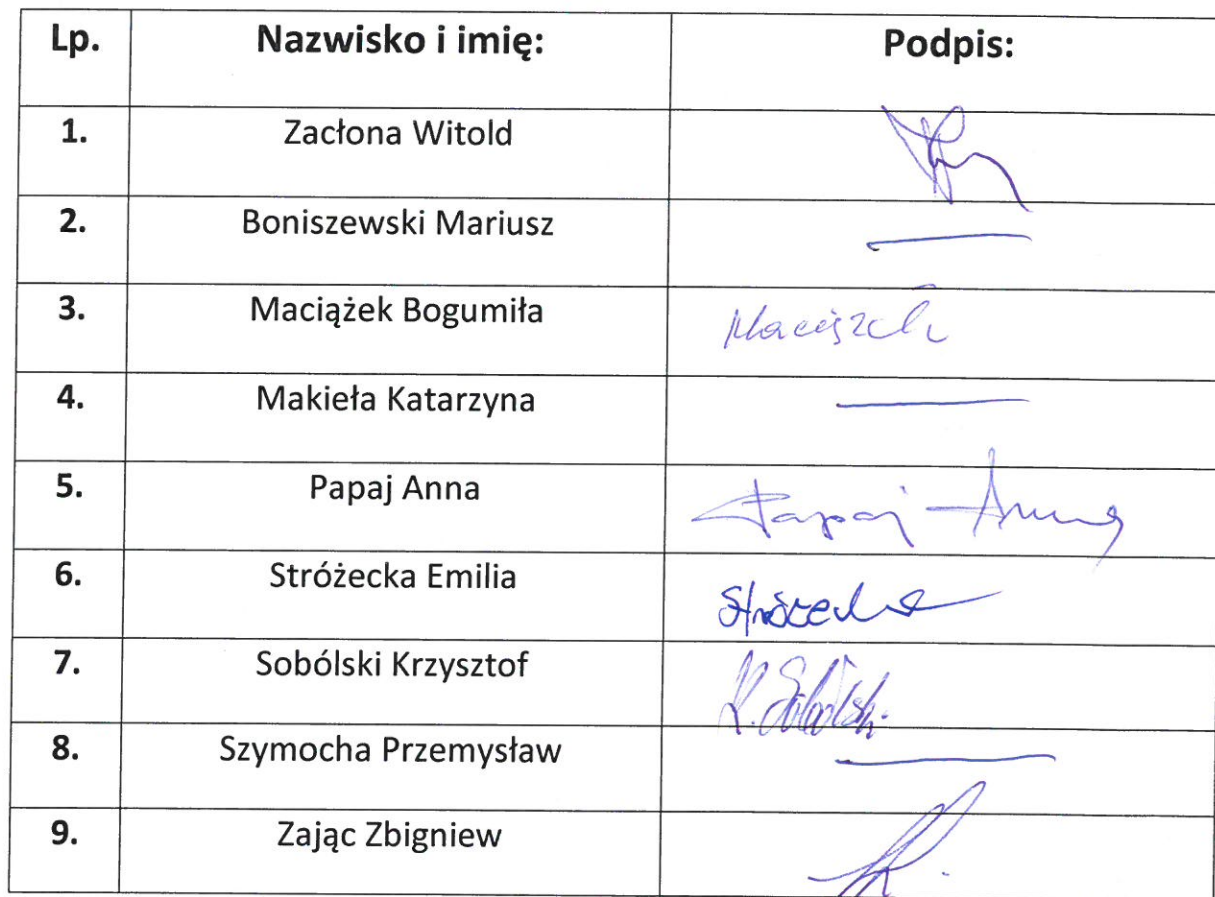 Lp. Nazwisko i imię: Podpis:
1. Zacłona Witold
2. Boniszewski Mariusz
3. Maciążek Bogumiła Maciążek
4. Makieła Katarzyna
5. Papaj Anna Papaj Anna
6. Stróżecka Emilia Stróżecka
7. Sobólski Krzysztof K. Sobólski
8. Szymocha Przemysław
9. Zając Zbigniew